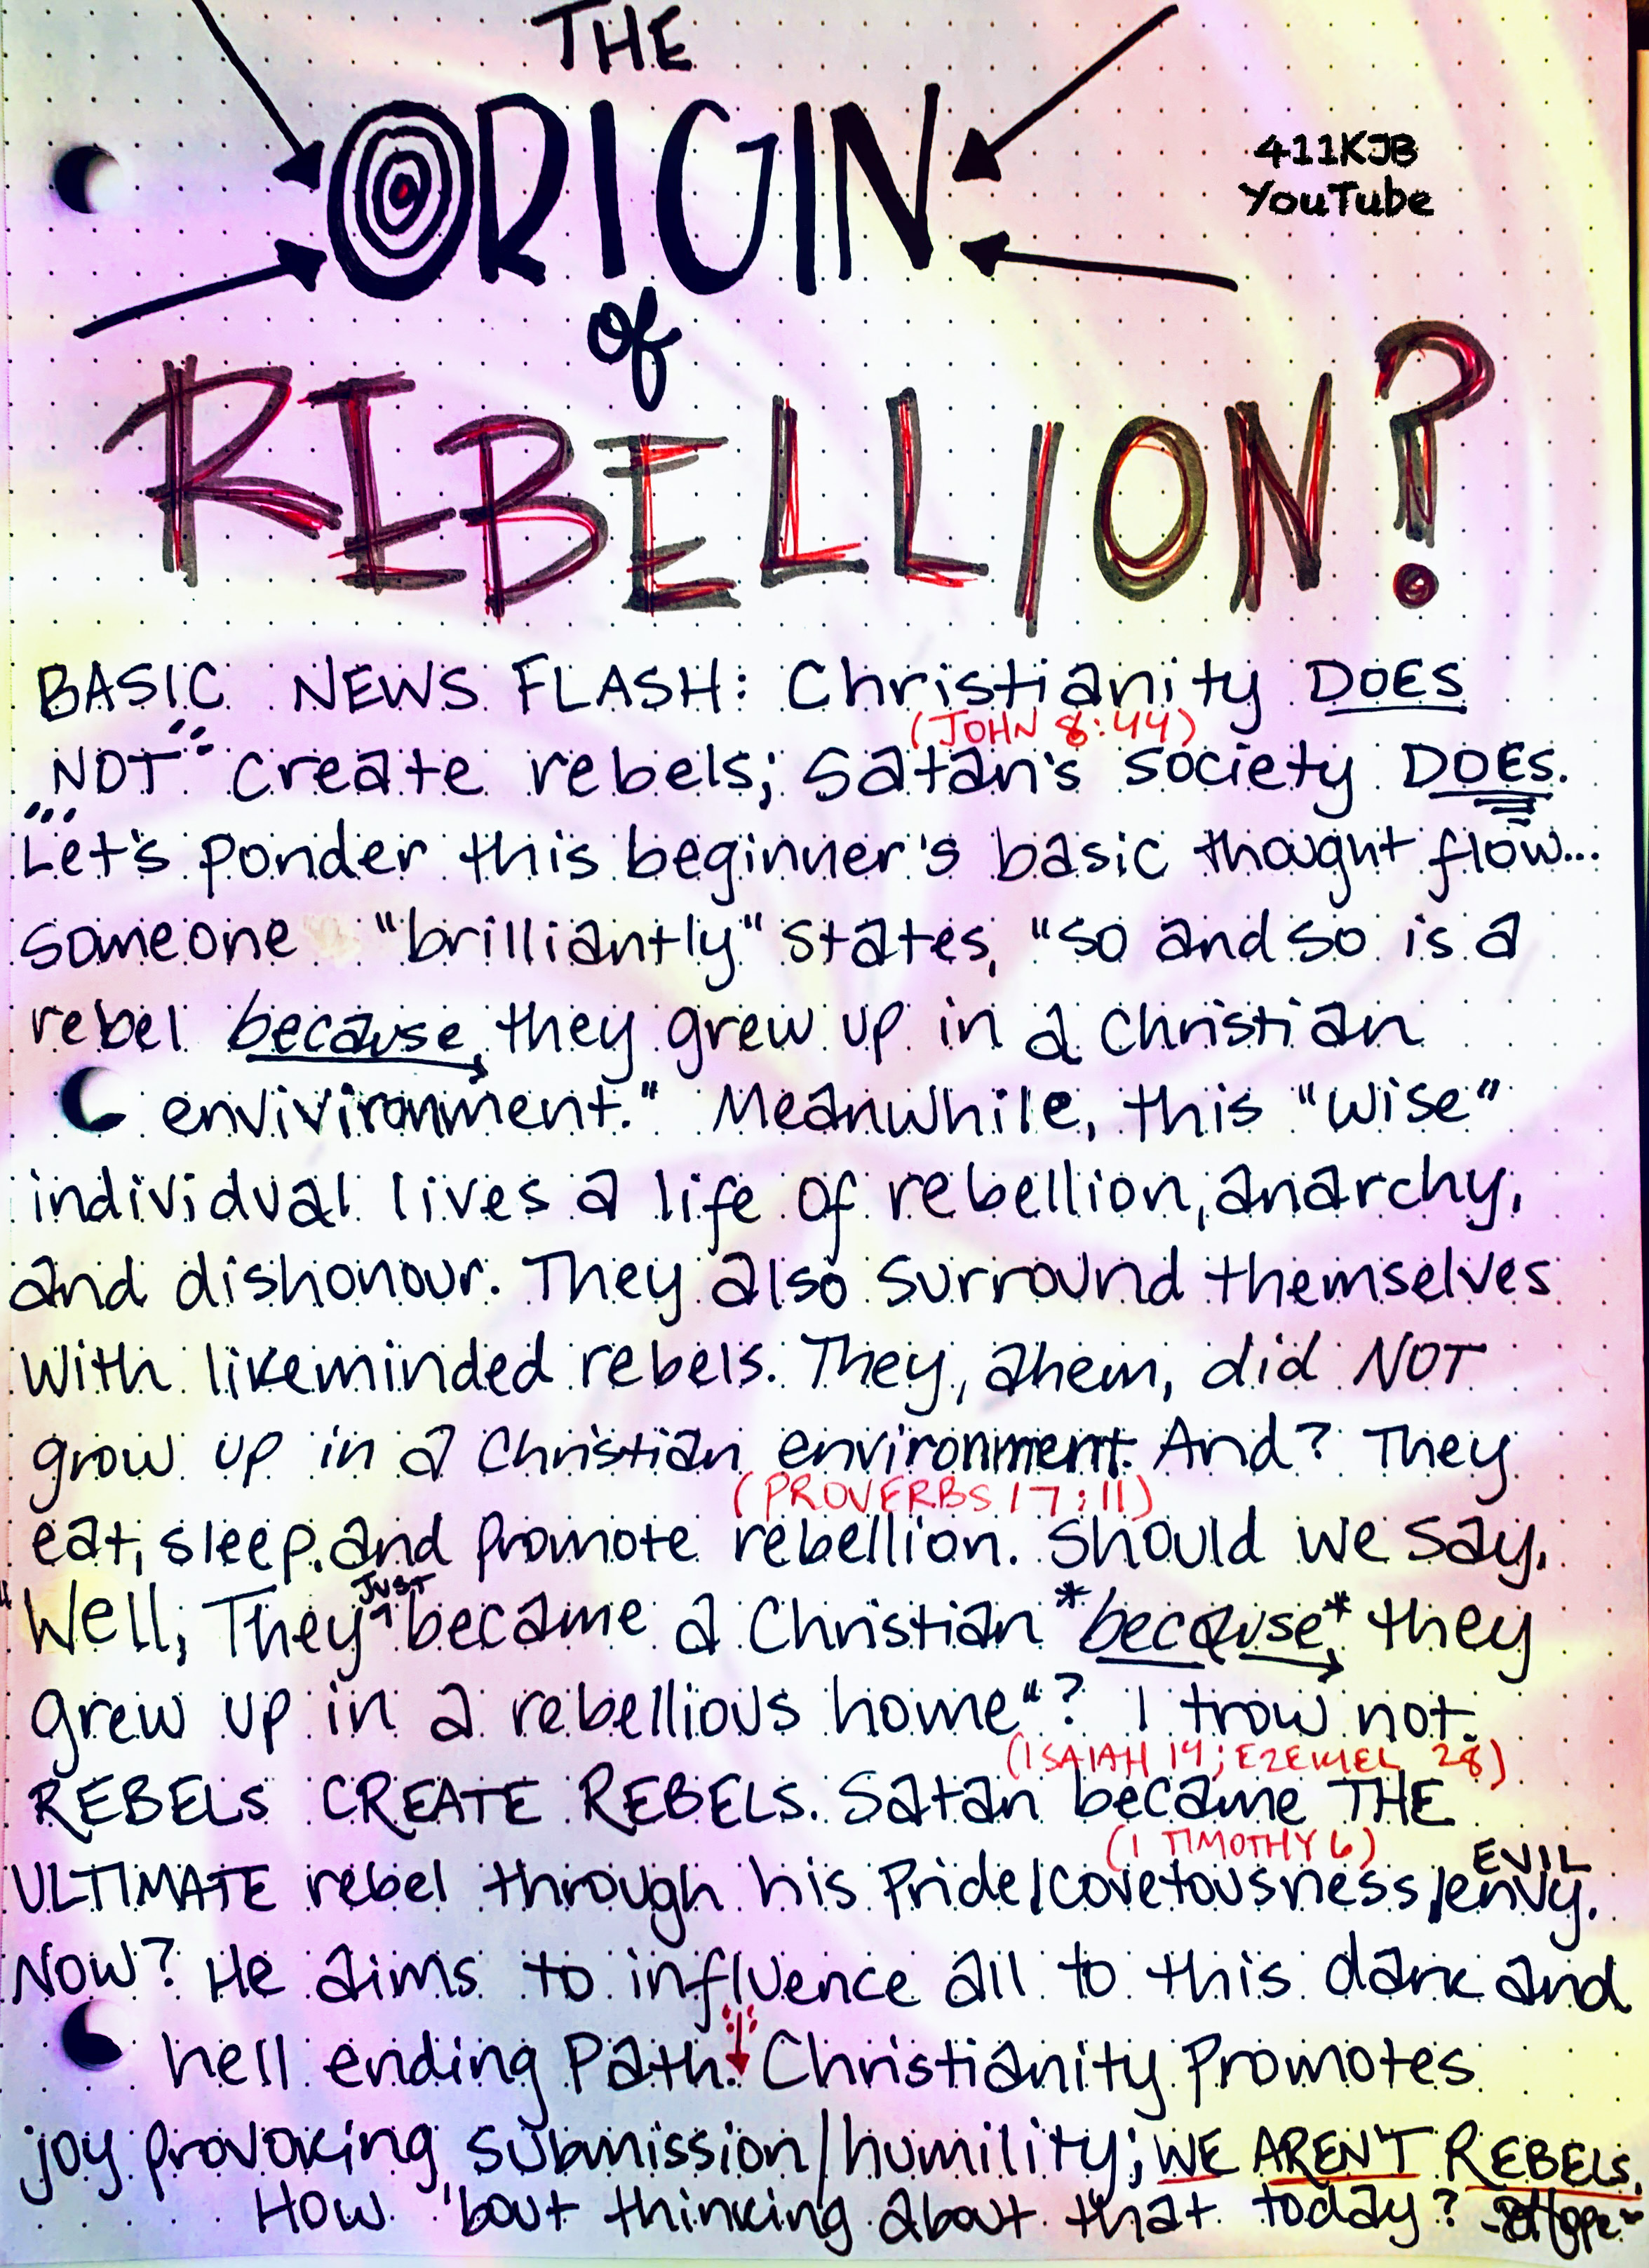 THE
ORIGIN
411KJB
YouTube
of
REBELLION?
BASIC NEWS FLASH: Christianity DOES
(JOHN 8:44)
NOT create rebels; Satan's society DOES.
Let's ponder this beginner's basic thought flow...
Someone "brilliantly" states, "so and so is a
rebel because they grew up in a Christian
envivironment." Meanwhile, this "wise"
individual lives a life of rebellion, anarchy,
and dishonour. They also surround themselves
with likeminded rebels. They, ahem, did NOT
grow up in a Christian environment. And? They
(PROVERBS 17:11)
eat, sleep, and promote rebellion. Should we say,
JUST
"Well, They ^ became a Christian *because* they
grew up in a rebellious home"? I trow not.
(ISAIAH 14; EZEKIEL 28)
REBELS CREATE REBELS. Satan became THE
(1 TIMOTHY 6)
EVIL
ULTIMATE rebel through his Pride/covetousness/envy.
Now? He aims to influence all to this dark and
hell ending Path. Christianity promotes
joy provoking submission/humility; WE AREN'T REBELS.
How 'bout thinking about that today?